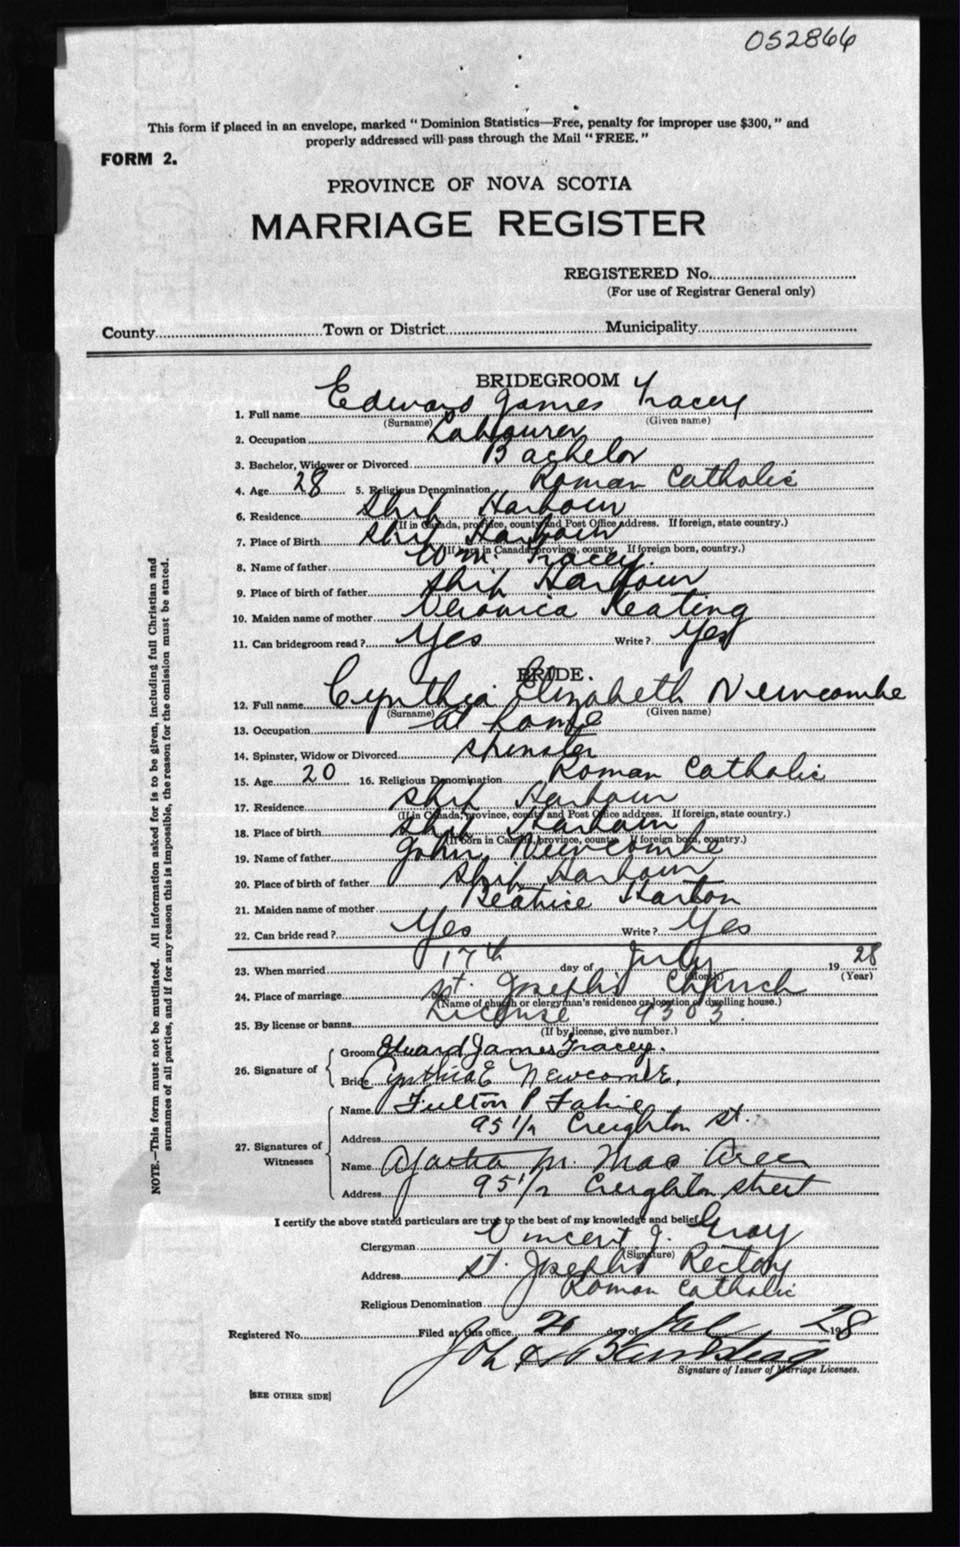 052866
This form if placed in an envelope, marked " Dominion Statistics—Free, penalty for improper use $300, " and
properly addressed will pass through the Mail " FREE. "
FORM 2.
PROVINCE OF NOVA SCOTIA
MARRIAGE REGISTER
REGISTERED No.
(For use of Registrar General only)
County Town or District Municipality
NOTE.—This form must not be mutilated. All information asked for is to be given, including full Christian and
surnames of all parties, and if for any reason this is impossible, the reason for the omission must be stated.
BRIDEGROOM
1. Full name Edward James Tracey
(Surname) (Given name)
2. Occupation Labourer
3. Bachelor, Widower or Divorced Bachelor
4. Age 28 5. Religious Denomination Roman Catholic
6. Residence Ship Harbour
(If in Canada, province, county and Post Office address. If foreign, state country.)
7. Place of Birth Ship Harbour
(If born in Canada, province, county. If foreign born, country.)
8. Name of father Wm. Tracey.
9. Place of birth of father Ship Harbour
10. Maiden name of mother Veronica Keating
11. Can bridegroom read ? Yes Write ? Yes
BRIDE.
12. Full name Cynthia Elizabeth Newcombe
(Surname) (Given name)
13. Occupation at home
14. Spinster, Widow or Divorced Spinster
15. Age 20 16. Religious Denomination Roman Catholic
17. Residence Ship Harbour
(If in Canada, province, county and Post Office address. If foreign, state country.)
18. Place of birth Ship Harbour
(If born in Canada, province, county. If foreign born, country.)
19. Name of father John Newcombe
20. Place of birth of father Ship Harbour
21. Maiden name of mother Beatrice Harton
22. Can bride read ? Yes Write ? Yes
23. When married 17th day of July 19 28
(Month) (Year)
24. Place of marriage St. Joseph's Church
(Name of church or clergyman's residence or location of dwelling house.)
25. By license or banns License 9303
(If by license, give number.)
26. Signature of
Groom Edward James Tracey.
Bride Cynthia E Newcombe.
27. Signatures of Witnesses
Name Fulton P Fahie
Address 95 1/2 Creighton St.
Name Agatha M. Mac
Address 95 1/2 Creighton Street
I certify the above stated particulars are true to the best of my knowledge and belief.
Clergyman Vincent J. Gray
(Signature)
Address St. Joseph's Rectory
Religious Denomination Roman Catholic
Registered No. Filed at this office 20 day of Jul 1928
John
Signature of Issuer of Marriage Licenses.
[SEE OTHER SIDE]